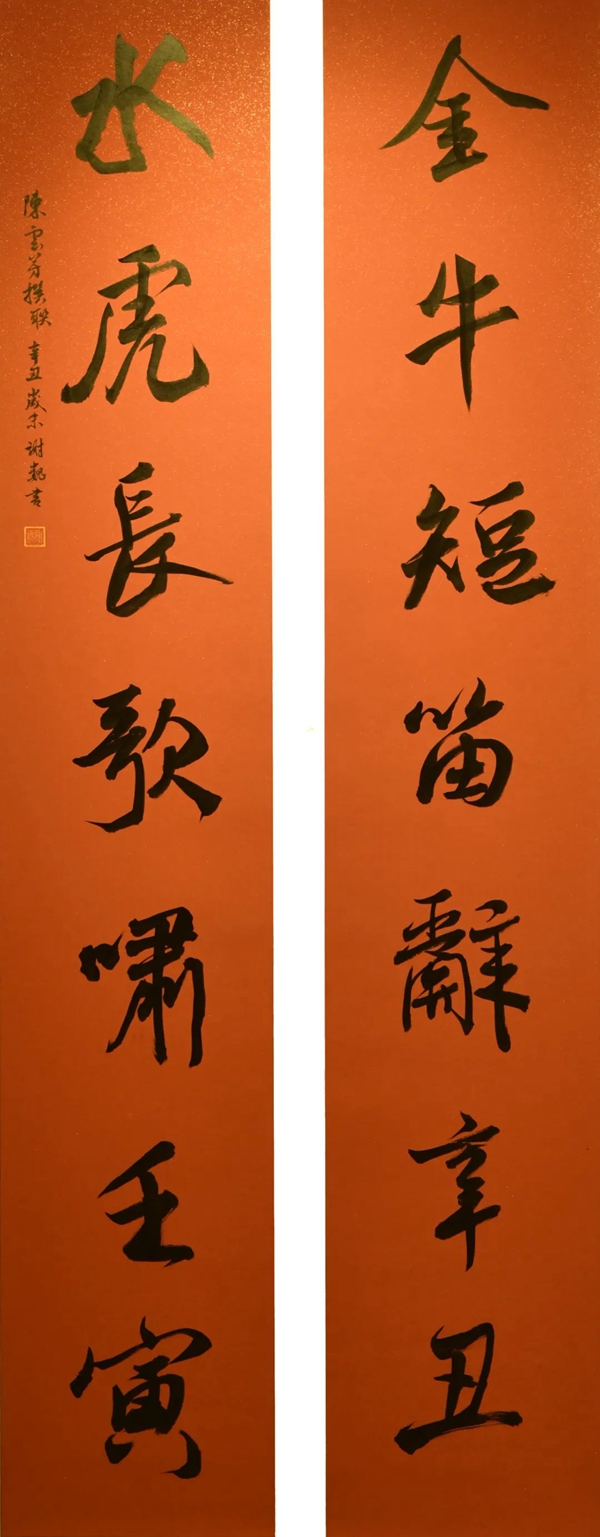 金牛短笛辭辛丑
水虎長歌嘯壬寅
陳雲芳撰联 辛丑歲末 謝魏書